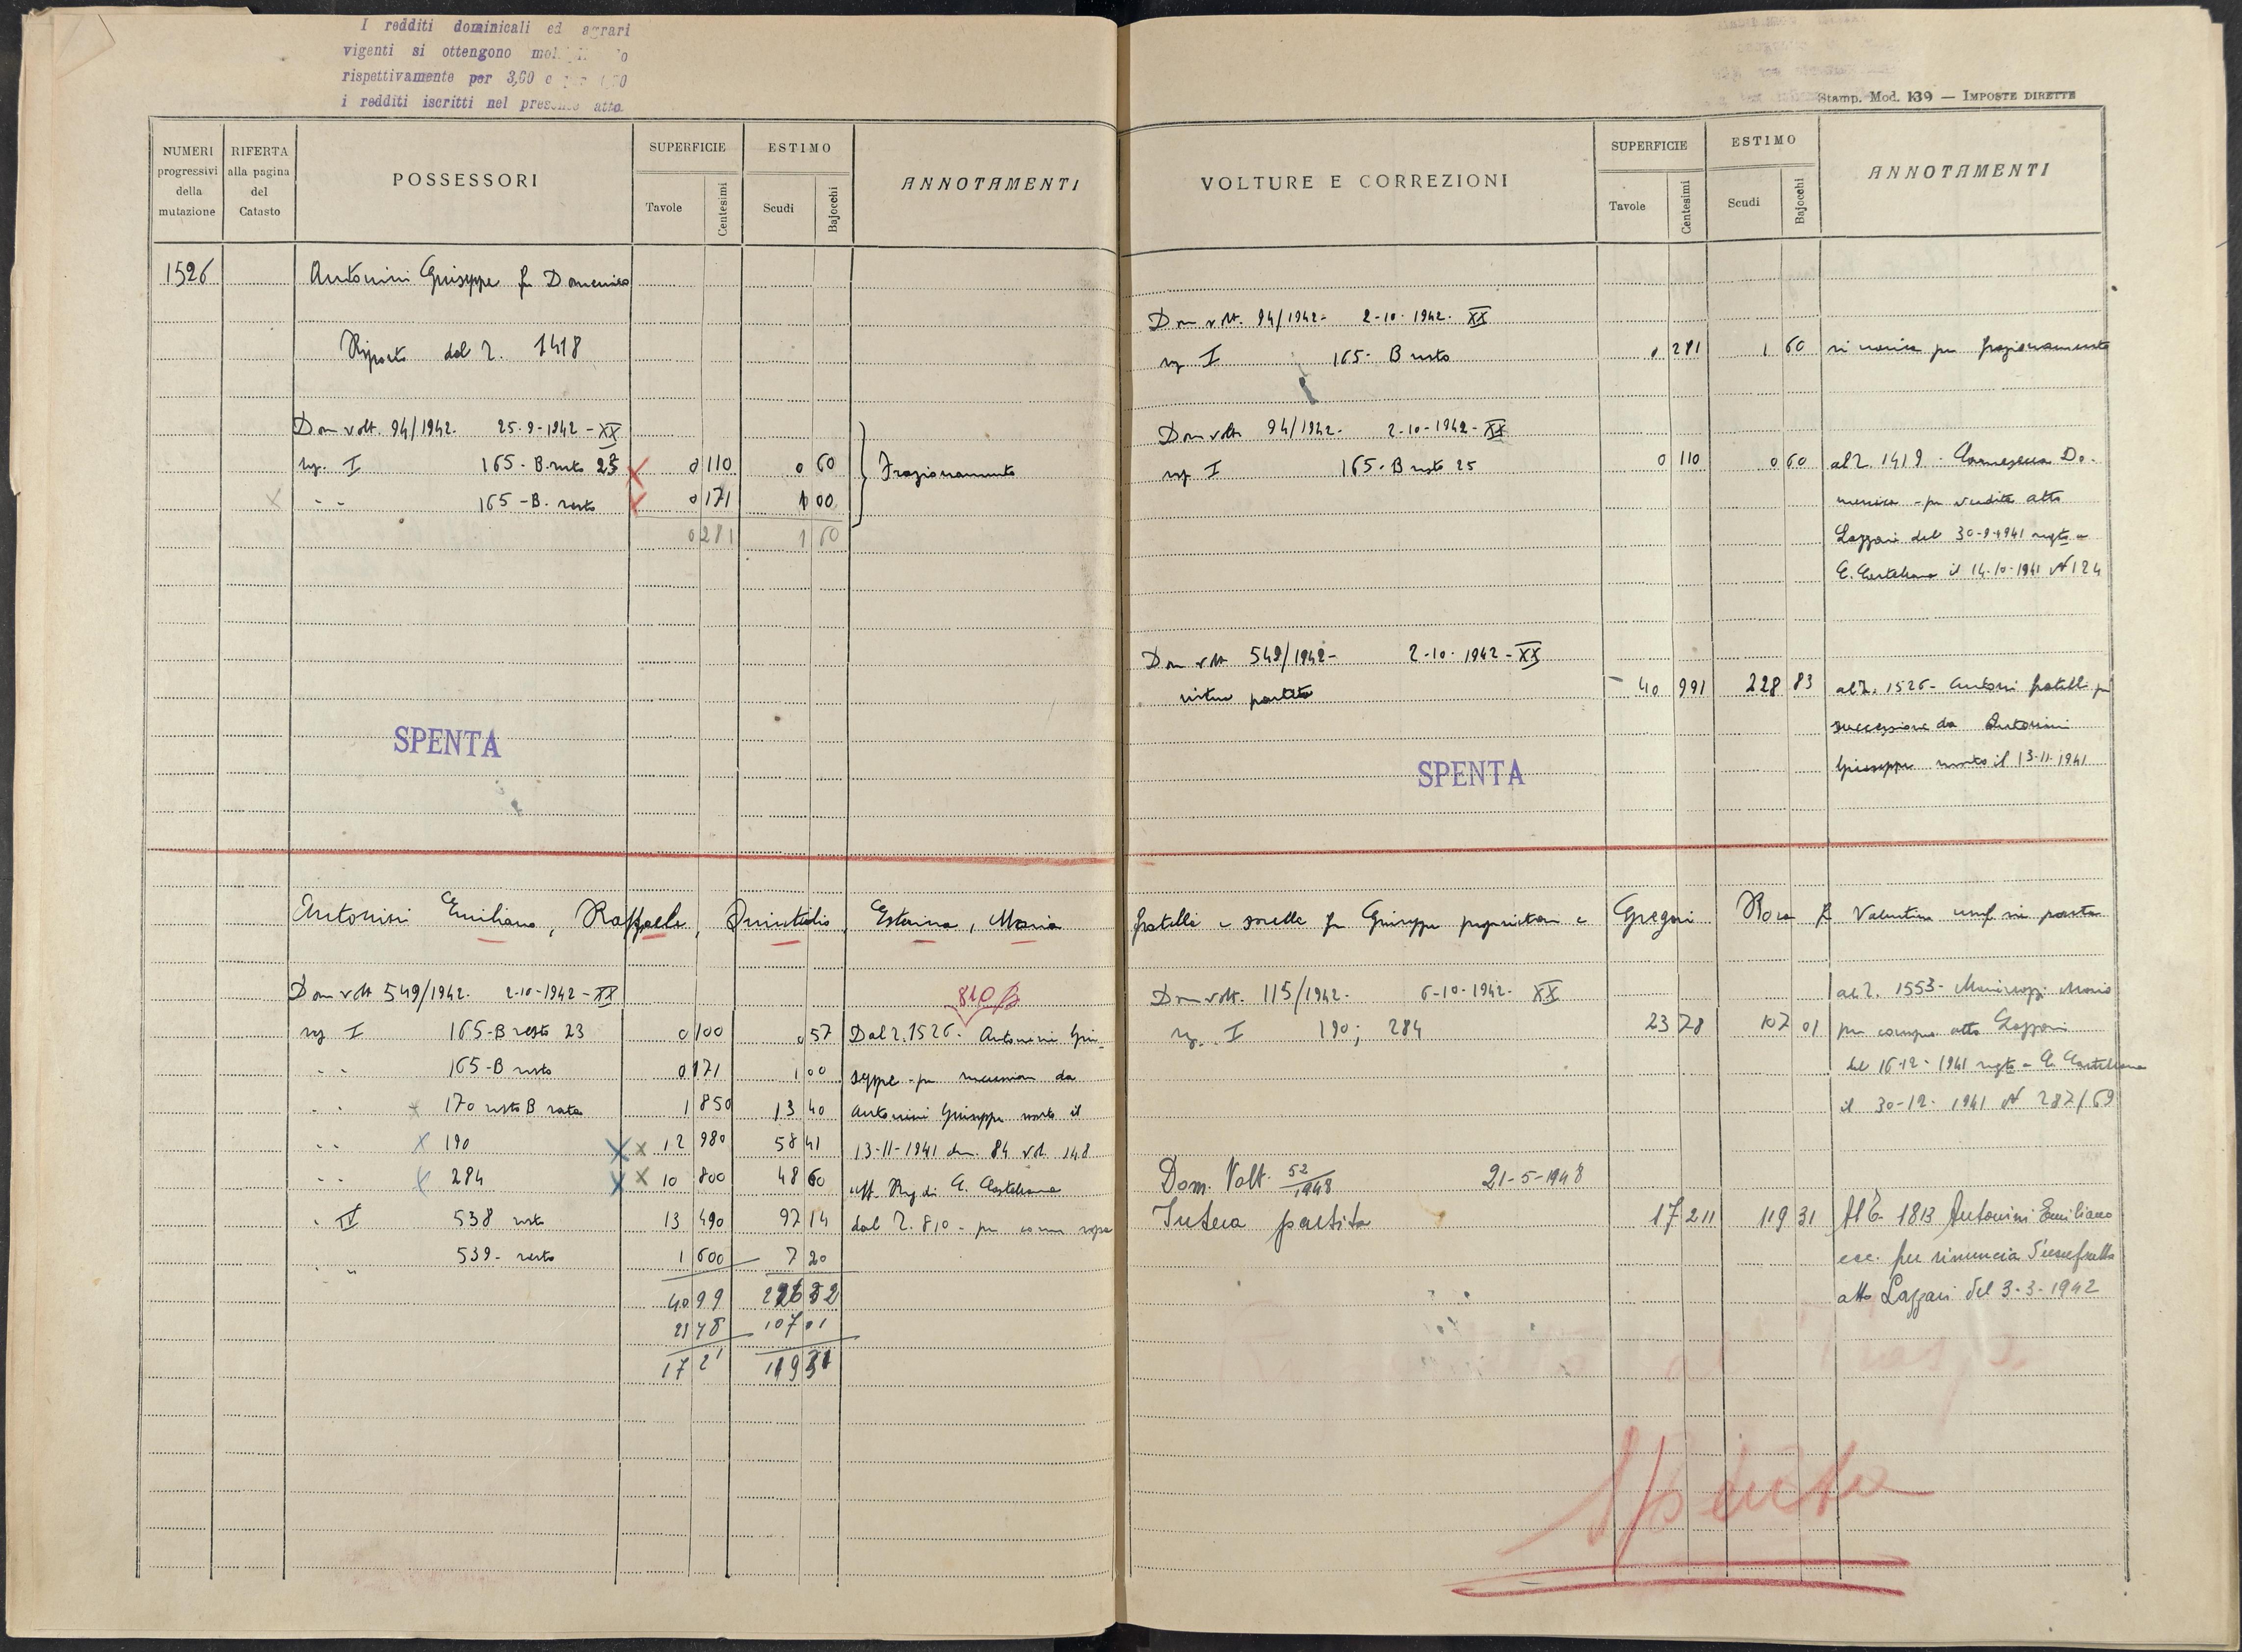 I redditi dominicali ed agrari
vigenti si ottengono
rispettivamente per 3,60 e
i redditi iscritti nel presente atto.
Stamp. Mod. 139 — IMPOSTE DIRETTE
NUMERI progressivi della mutazione
RIFERTA alla pagina del Catasto
POSSESSORI
SUPERFICIE
Tavole
Centesimi
ESTIMO
Scudi
Bajocchi
ANNOTAMENTI
1526 Antonini Giuseppe fu Domenico
Riporto dal 2. 1418
Dom volt. 94/1942. 25-9-1942-XX
I 165-B. resto 23 0 110 0 60 Frazionamento
165-B. resto 0 171 1 00
0 281 1 60
SPENTA
Antonini Emiliano, Raffaele, Quintilio, Esterina, Maria
Dom volt 549/1942. 2-10-1942-XX 810
I 165-B resto 23 0 100 0 57 Dal 2. 1526. Antonini Giu-
165-B resto 0 171 1 00 seppe - per successione da
170 resto B rata 1 850 13 40 Antonini Giuseppe morto il
190 12 980 58 41 13-11-1941 den. 84 vol. 148
284 10 800 48 60 uff. Reg. di C. Castellana
II 538 resto 13 490 97 14 dal 2. 810 - per come sopra
539- resto 1 600 7 20
40 99
23 78 107 01
17 21 119 31
VOLTURE E CORREZIONI
SUPERFICIE
Tavole
Centesimi
ESTIMO
Scudi
Bajocchi
ANNOTAMENTI
Dom volt. 94/1942- 2-10-1942- XX
I 165- B resto 0 281 1 60 si varia per frazionamento
Dom volt. 94/1942- 2-10-1942- XX
I 165- B resto 25 0 110 0 60 al 2. 1419 - Do-
menica - per vendita atto
Lazzari del 30-9-1941 regto a
C. Castellana il 14-10-1941 N 124
Dom volt 549/1942- 2-10-1942-XX
intera partita 40 991 228 83 al 2. 1526- Antonini fratelli per
successione da Antonini
Giuseppe morto il 13-11-1941
SPENTA
fratelli e sorelle fu Giuseppe proprietari e Gregori Rosa fu Valentino usuf in parte
Dom volt. 115/1942. 6-10-1942- XX al 2. 1553- Maria
I 190; 284 23 78 107 01 per compra atto Lazzari
del 16-12-1941 regto a C. Castellana
il 30-12-1941 N 287/69
Dom. Volt. 52/1948 21-5-1948
Intera partita 17 211 119 31 Al 2. 1813 Antonini Emiliano
ecc. per rinuncia d'usufrutto
atto Lazzari del 3-3-1942
Spenta